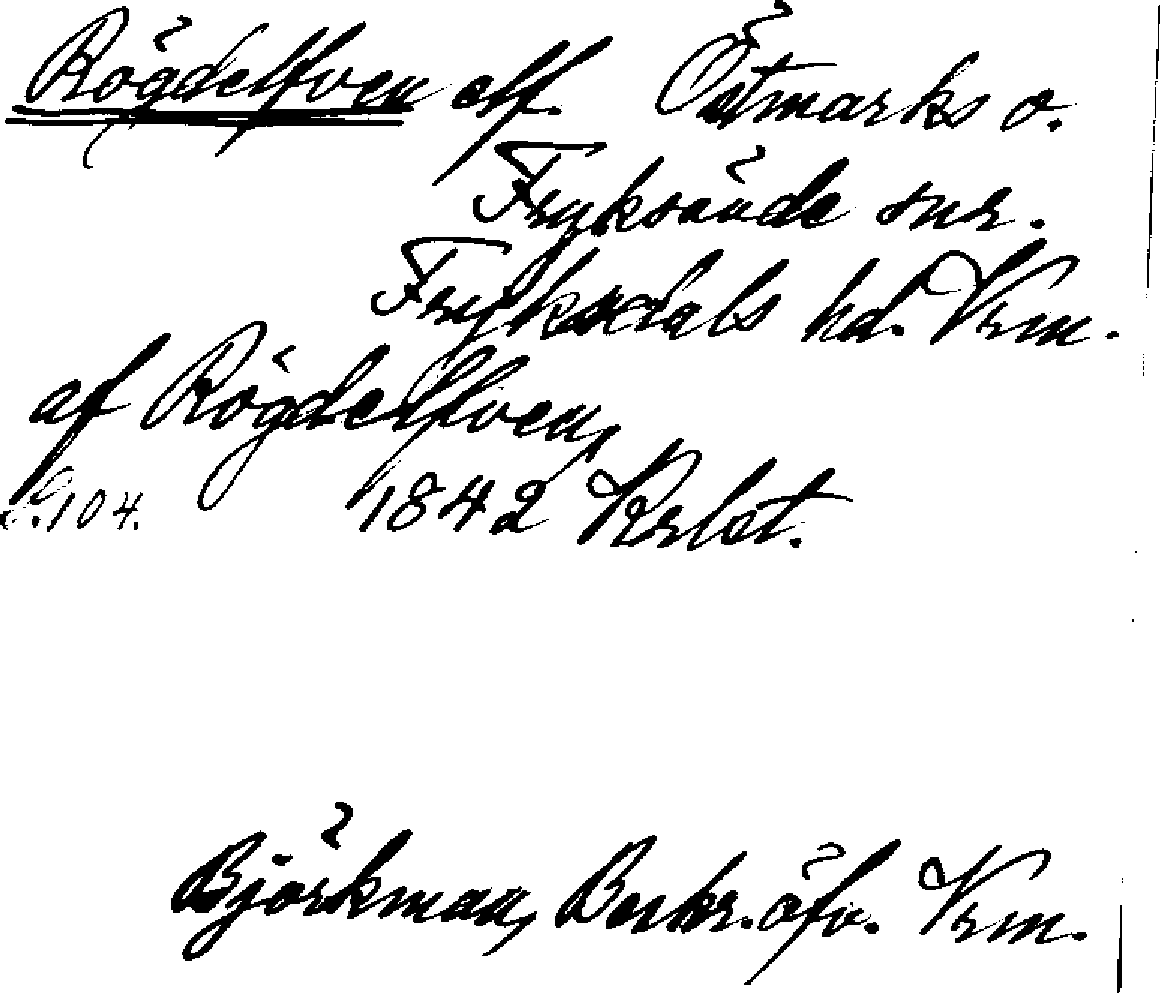 Rögdelfven elf. Östmarks o.
Fryksände snr.
Fryksdals hd. Vrm.
af Rögdelfven,
S. 104. 1842 Krbet.
Björkman, Beskr. öfv. Vrm.